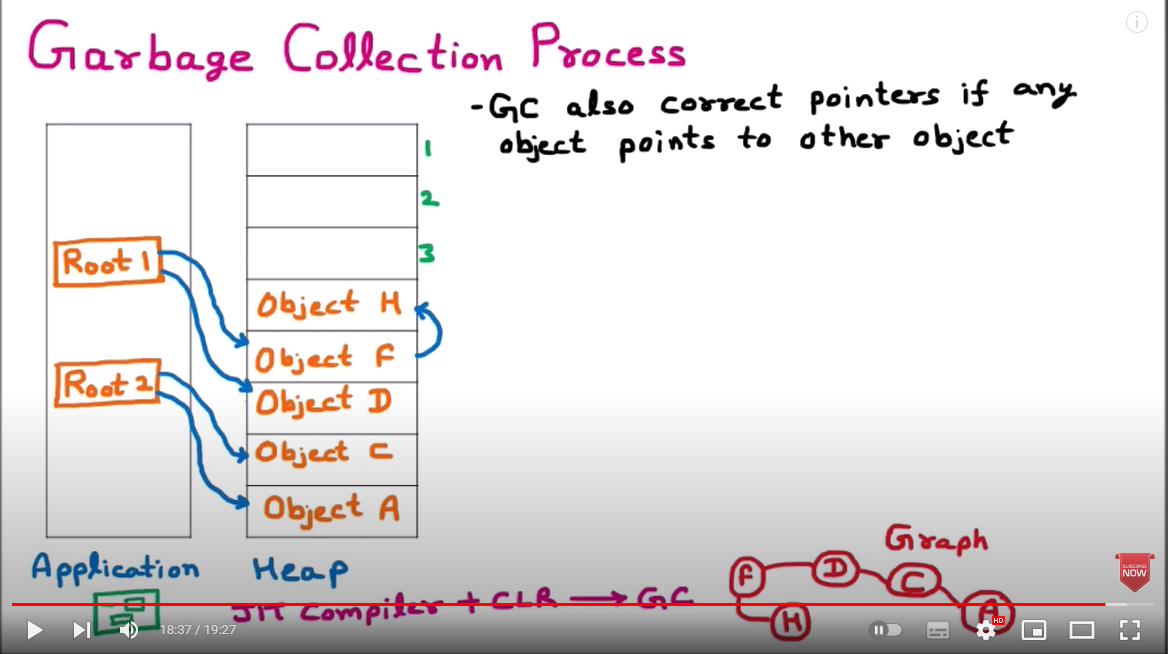 Garbage Collection Process
- GC also correct pointers if any
object points to other object
1
2
3
Root 1
Object H
Object F
Root 2
Object D
Object C
Object A
Application
Heap
JIT Compiler + CLR → GC
Graph
F
D
C
A
H
SUBSCRIBE
NOW
18:37 / 19:27
HD